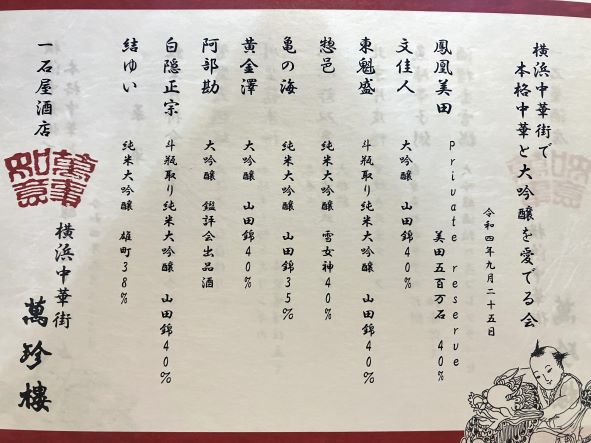 横浜中華街で
本格中華と大吟醸を愛でる会
令和四年九月二十五日
鳳凰美田 Private reserve
美田五百万石 40%
文佳人 大吟醸 山田錦40%
東魁盛 斗瓶取り純米大吟醸 山田錦40%
惣邑 純米大吟醸 雪女神40%
亀の海 純米大吟醸 山田錦35%
黄金澤 大吟醸 山田錦40%
阿部勘 大吟醸 鑑評会出品酒
白隠正宗 斗瓶取り純米大吟醸 山田錦40%
結ゆい 純米大吟醸 雄町38%
一石屋酒店
萬事如意
横浜中華街
萬珍樓